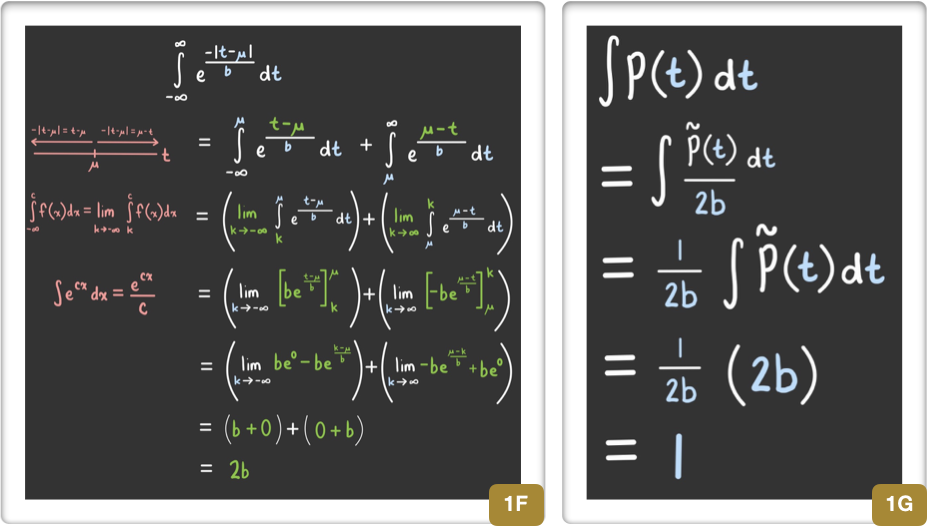 ∫_{-∞}^{∞} e^{-|t-μ|/b} dt
-|t-μ| = t-μ   -|t-μ| = μ-t
μ   t
= ∫_{-∞}^{μ} e^{(t-μ)/b} dt + ∫_{μ}^{∞} e^{(μ-t)/b} dt
∫_{-∞}^{c} f(x)dx = lim_{k→-∞} ∫_{k}^{c} f(x)dx
= (lim_{k→-∞} ∫_{k}^{μ} e^{(t-μ)/b} dt) + (lim_{k→∞} ∫_{μ}^{k} e^{(μ-t)/b} dt)
∫e^{cx} dx = e^{cx}/c
= (lim_{k→-∞} [be^{(t-μ)/b}]_{k}^{μ}) + (lim_{k→∞} [-be^{(μ-t)/b}]_{μ}^{k})
= (lim_{k→-∞} be^0 - be^{(k-μ)/b}) + (lim_{k→∞} -be^{(μ-k)/b} + be^0)
= (b+0) + (0+b)
= 2b
1F
∫P(t) dt
= ∫ P̃(t)/2b dt
= 1/2b ∫ P̃(t) dt
= 1/2b (2b)
= 1
1G